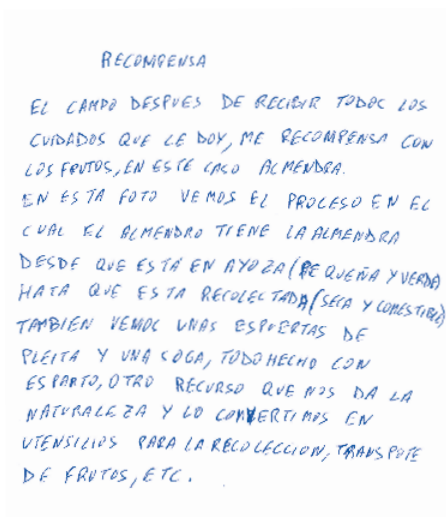 RECOMPENSA
EL CAMPO DESPUES DE RECIBIR TODOC LOS
CUIDADOS QUE LE DOY, ME RECOMPENSA CON
LOS FRUTOS, EN ESTE CASO ALMENDRA.
EN ESTA FOTO VEMOS EL PROCESO EN EL
CUAL EL ALMENDRO TIENE LA ALMENDRA
DESDE QUE ESTÁ EN AYOZA (PEQUEÑA Y VERDE)
HATA QUE ESTA RECOLECTADA (SECA Y COMESTIBLE)
TAMBIEN VEMOC UNAS ESPUERTAS DE
PLEITA Y UNA COGA, TODO HECHO CON
ESPARTO, OTRO RECURSO QUE NOS DA LA
NATURALEZA Y LO CONVERTIMOS EN
UTENSILIOS PARA LA RECOLECCION, TRANSPOTE
DE FRUTOS, ETC.